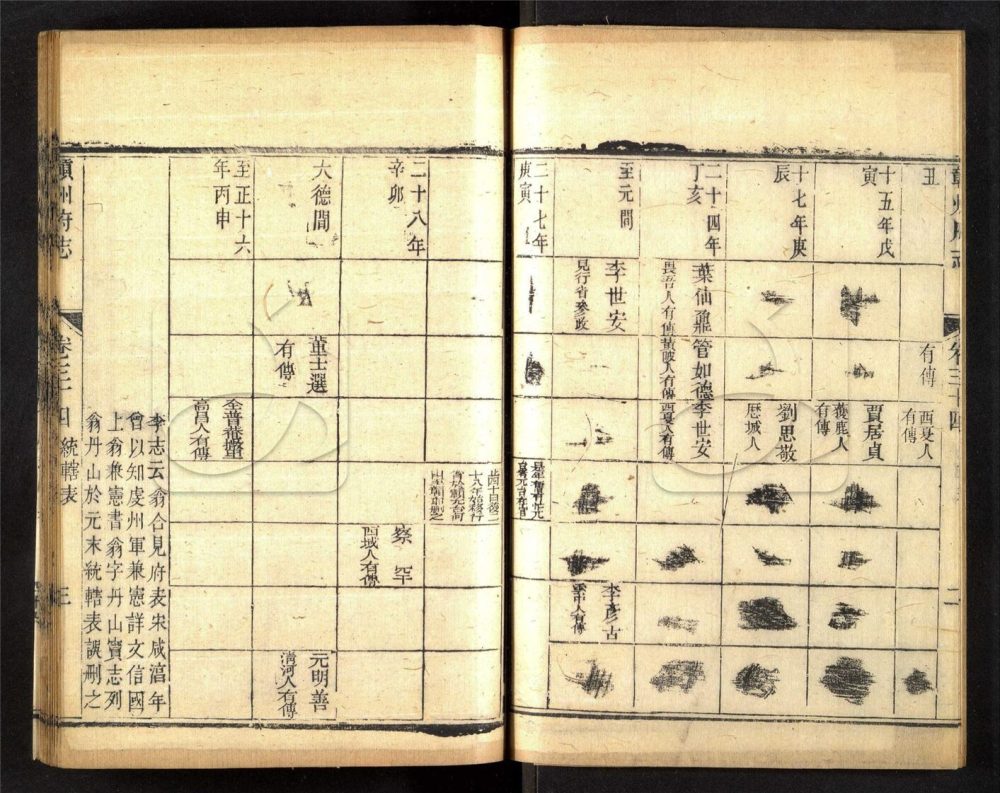 丑
有傳
西夏人
有傳
十五年戊
寅
賈居貞
獲鹿人
有傳
十七年庚
辰
劉思敬
歷城人
二十四年
丁亥
葉仙鼐
畏吾人有傳
管如德
黃陂人有傳
李世安
西夏人有傳
至元間
李世安
見行省參政
李彥古
二十七年
庚寅
二
二十八年
辛卯
察罕
西域人有傳
大德間
董士選
有傳
元明善
清河人有傳
至正十六
年丙申
全普菴撒里
高昌人有傳
李志云翁合見府表宋咸淳年
曾以知虔州軍兼憲詳文信國
上翁兼憲書翁字丹山竇志列
翁丹山於元末統轄表誤刪之
贛州府志
卷三十四
統轄表
三